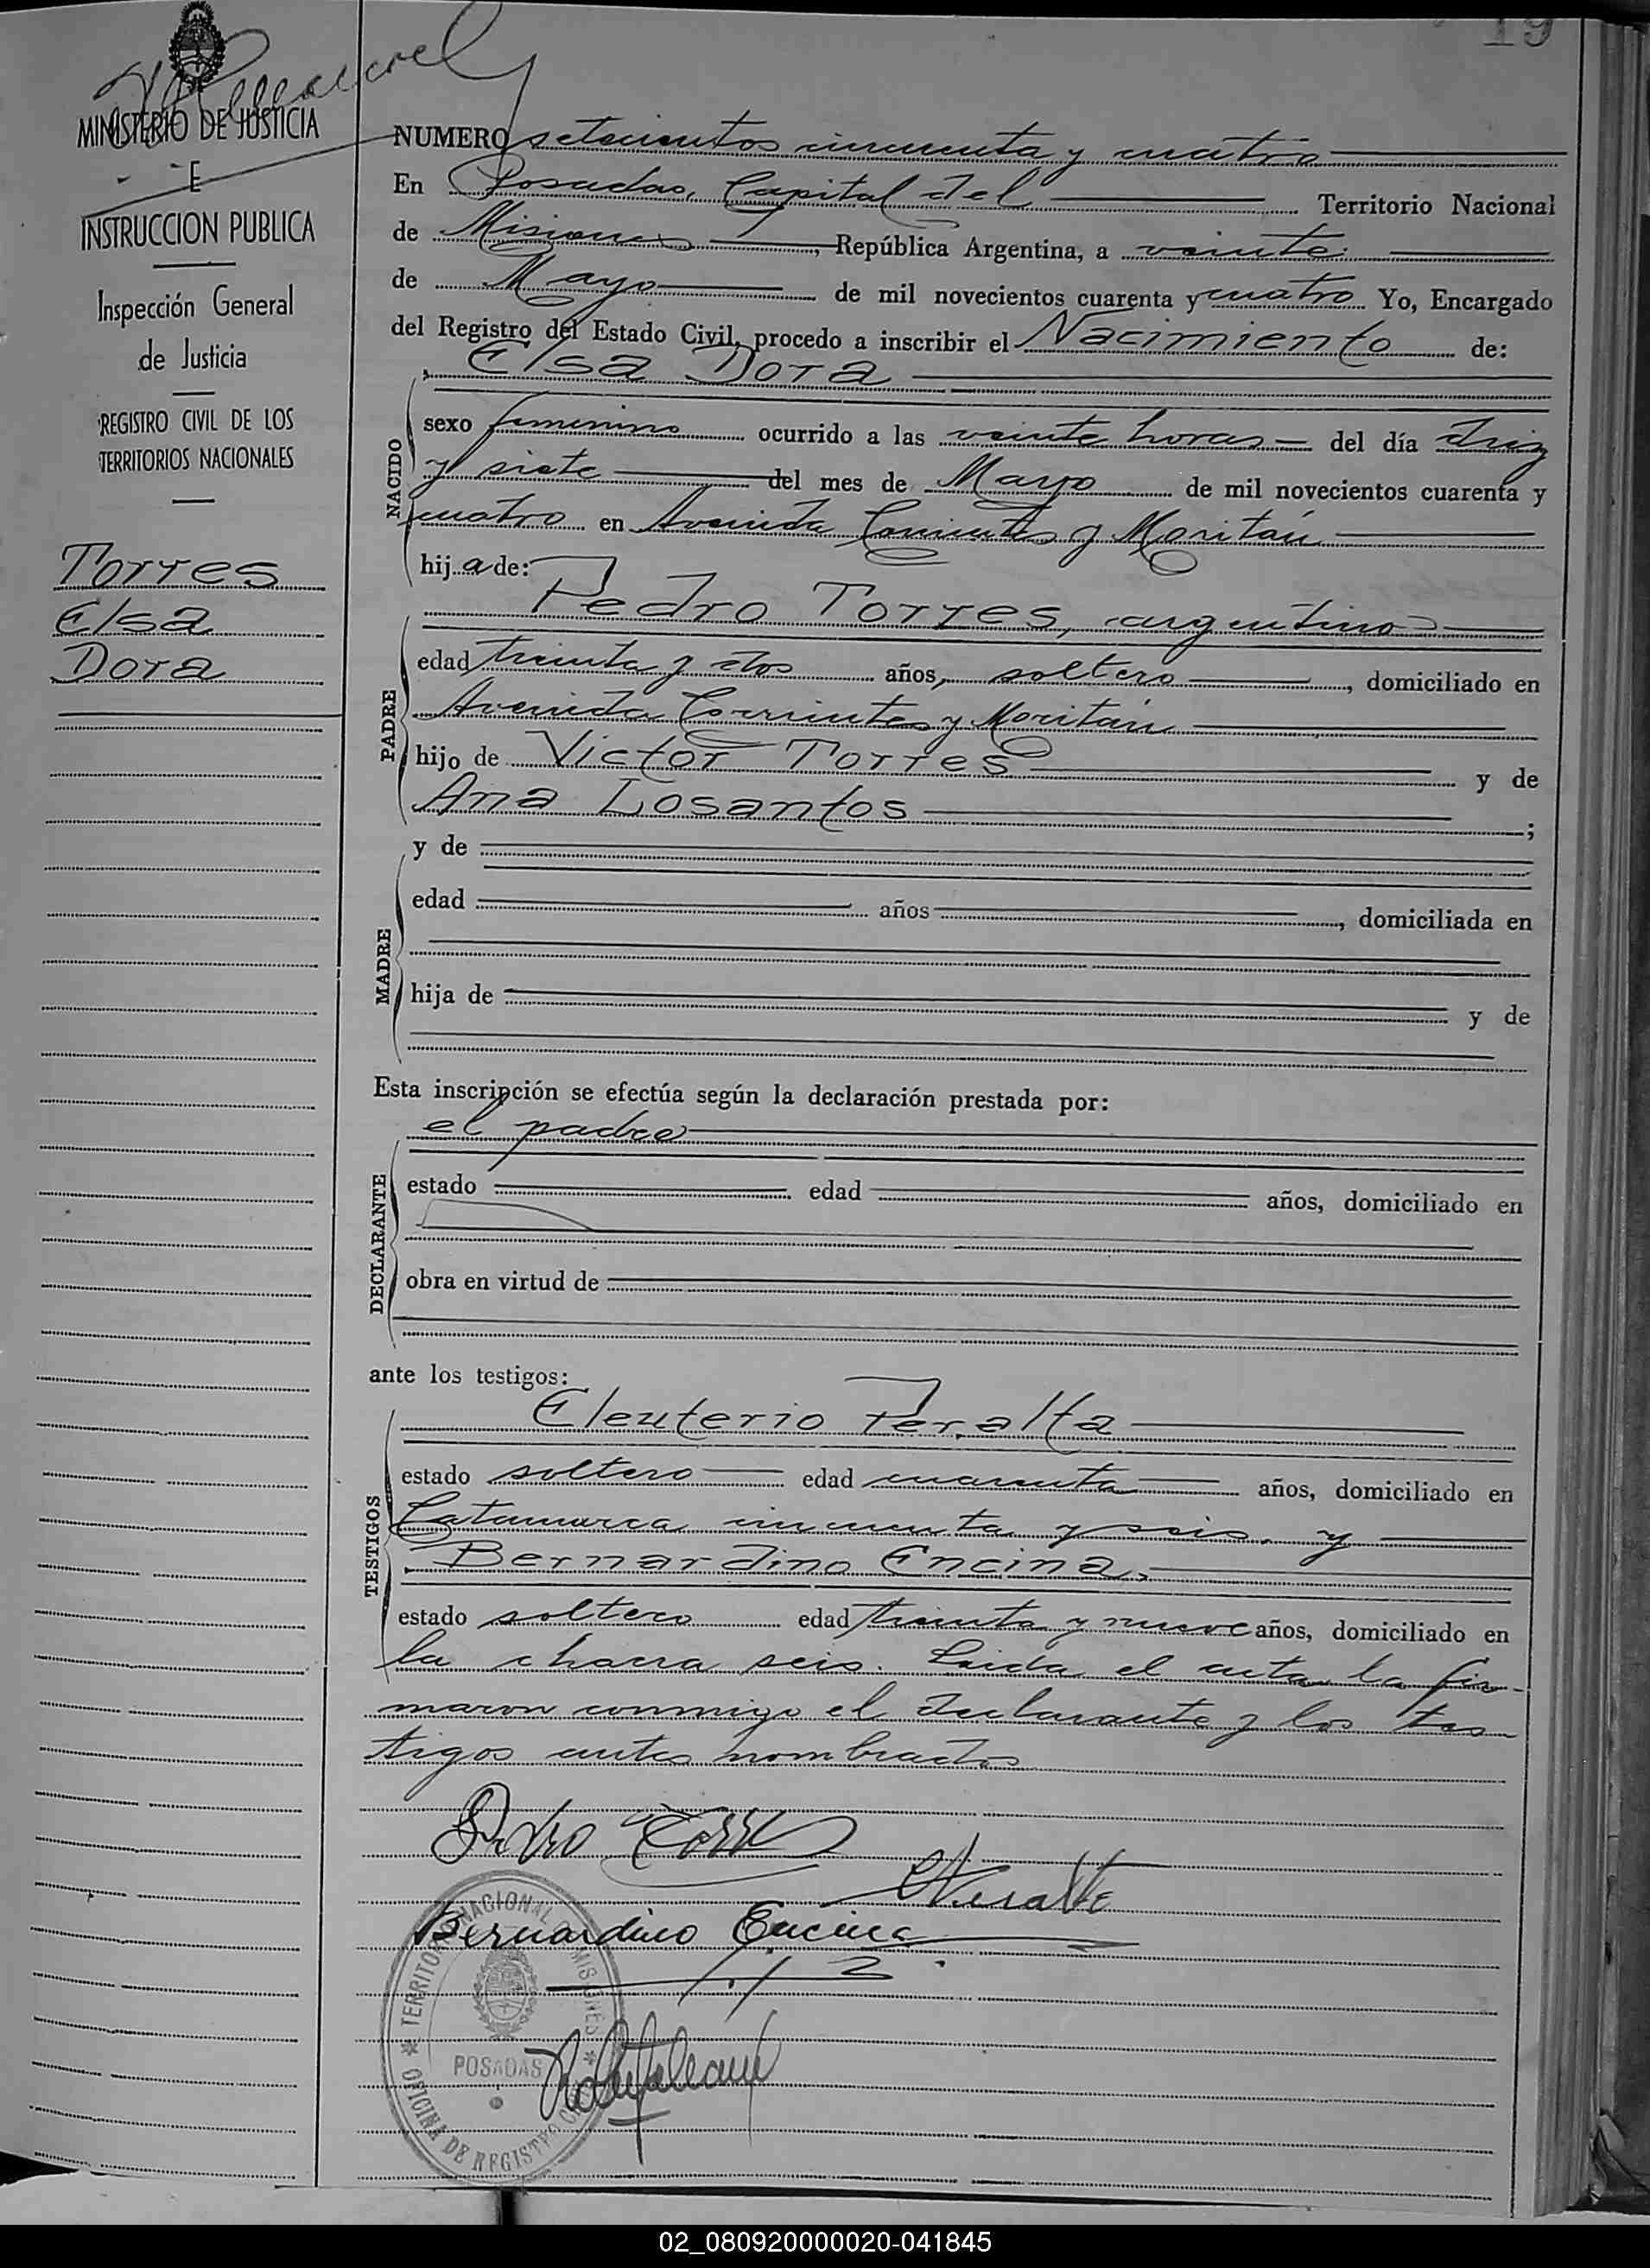 19
MINISTERIO DE JUSTICIA
E
INSTRUCCION PUBLICA
Inspección General
de Justicia
REGISTRO CIVIL DE LOS
TERRITORIOS NACIONALES
Torres
Elsa
Dora
NUMERO setecientos cincuenta y cuatro
En Posadas, Capital del Territorio Nacional
de Misiones, República Argentina, a veinte
de Mayo de mil novecientos cuarenta y cuatro Yo, Encargado
del Registro del Estado Civil, procedo a inscribir el Nacimiento de:
Elsa Dora
NACIDO
sexo femenino ocurrido a las veinte horas del día diez
y siete del mes de Mayo de mil novecientos cuarenta y
cuatro en Avenida Corrientes y Moritán
hija de:
Pedro Torres, argentino
PADRE
edad treinta y dos años, soltero, domiciliado en
Avenida Corrientes y Moritán
hijo de Victor Torres y de
Ana Losantos;
MADRE
y de
edad años, domiciliada en
hija de y de
Esta inscripción se efectúa según la declaración prestada por:
el padre
DECLARANTE
estado edad años, domiciliado en
obra en virtud de
ante los testigos:
Eleuterio Peralta
TESTIGOS
estado soltero edad cuarenta años, domiciliado en
Catamarca cincuenta y seis, y
Bernardino Encina,
estado soltero edad treinta y nueve años, domiciliado en
la chacra seis. Leida el acta la fir-
maron conmigo el declarante y los tes
tigos antes nombrados
Pedro Torres
EPeralta
Bernardino Encina
TERRITORIO NACIONAL MISIONES
POSADAS
OFICINA DE REGISTRO CIVIL
02_080920000020-041845